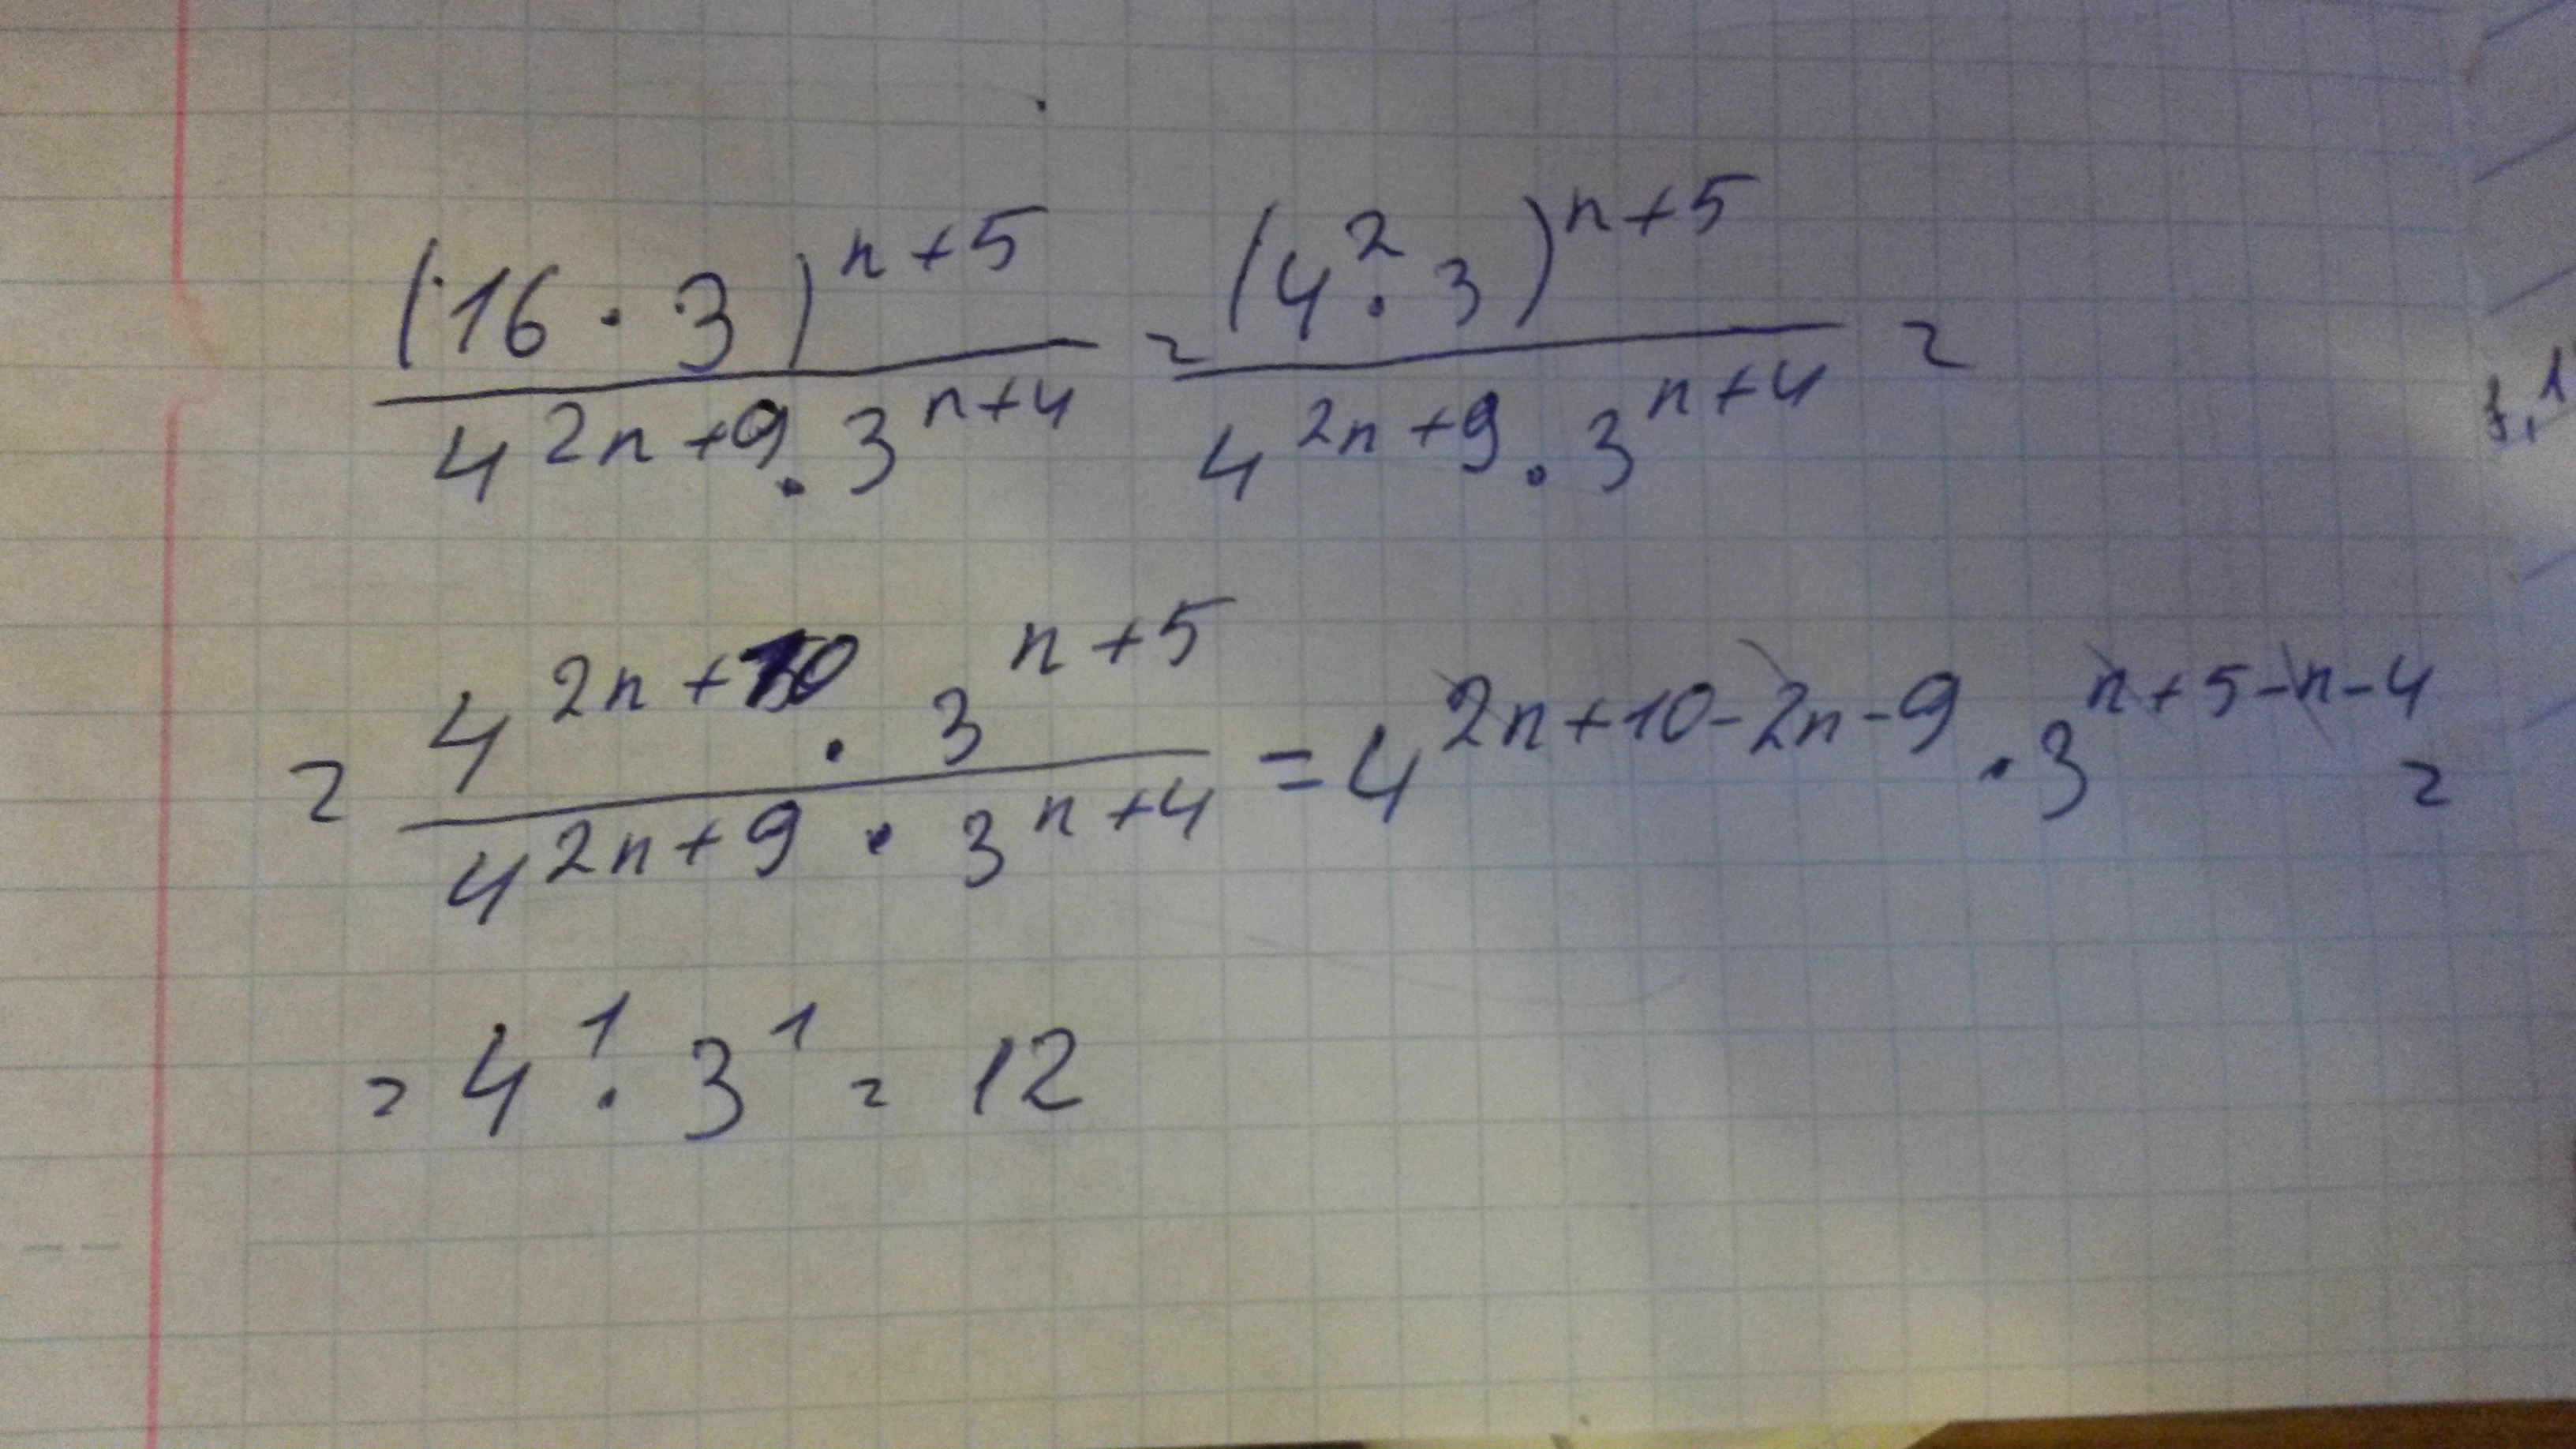 (16 · 3)^{n+5} / 4^{2n+9} · 3^{n+4} = (4^2 · 3)^{n+5} / 4^{2n+9} · 3^{n+4} =
= 4^{2n+10} · 3^{n+5} / 4^{2n+9} · 3^{n+4} = 4^{2n+10-2n-9} · 3^{n+5-n-4} =
= 4^1 · 3^1 = 12